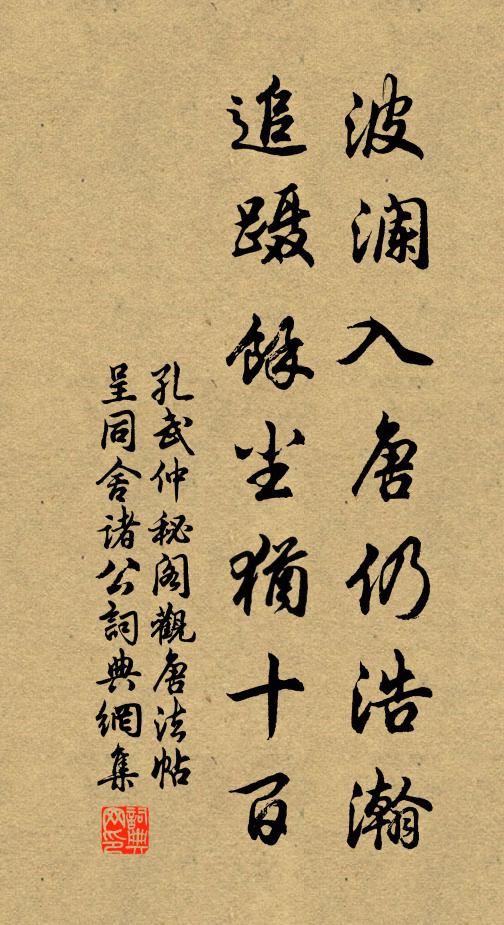 波澜入唐仍浩瀚
追蹑餘尘猶十百
孔武仲秘阁觀唐法帖
呈同舍诸公詞典網集
詞典
网印